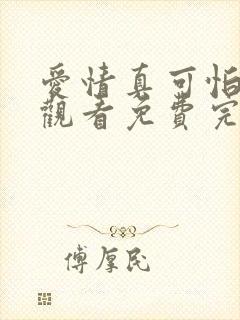 愛情真可怕
觀看免費完
傅厚民